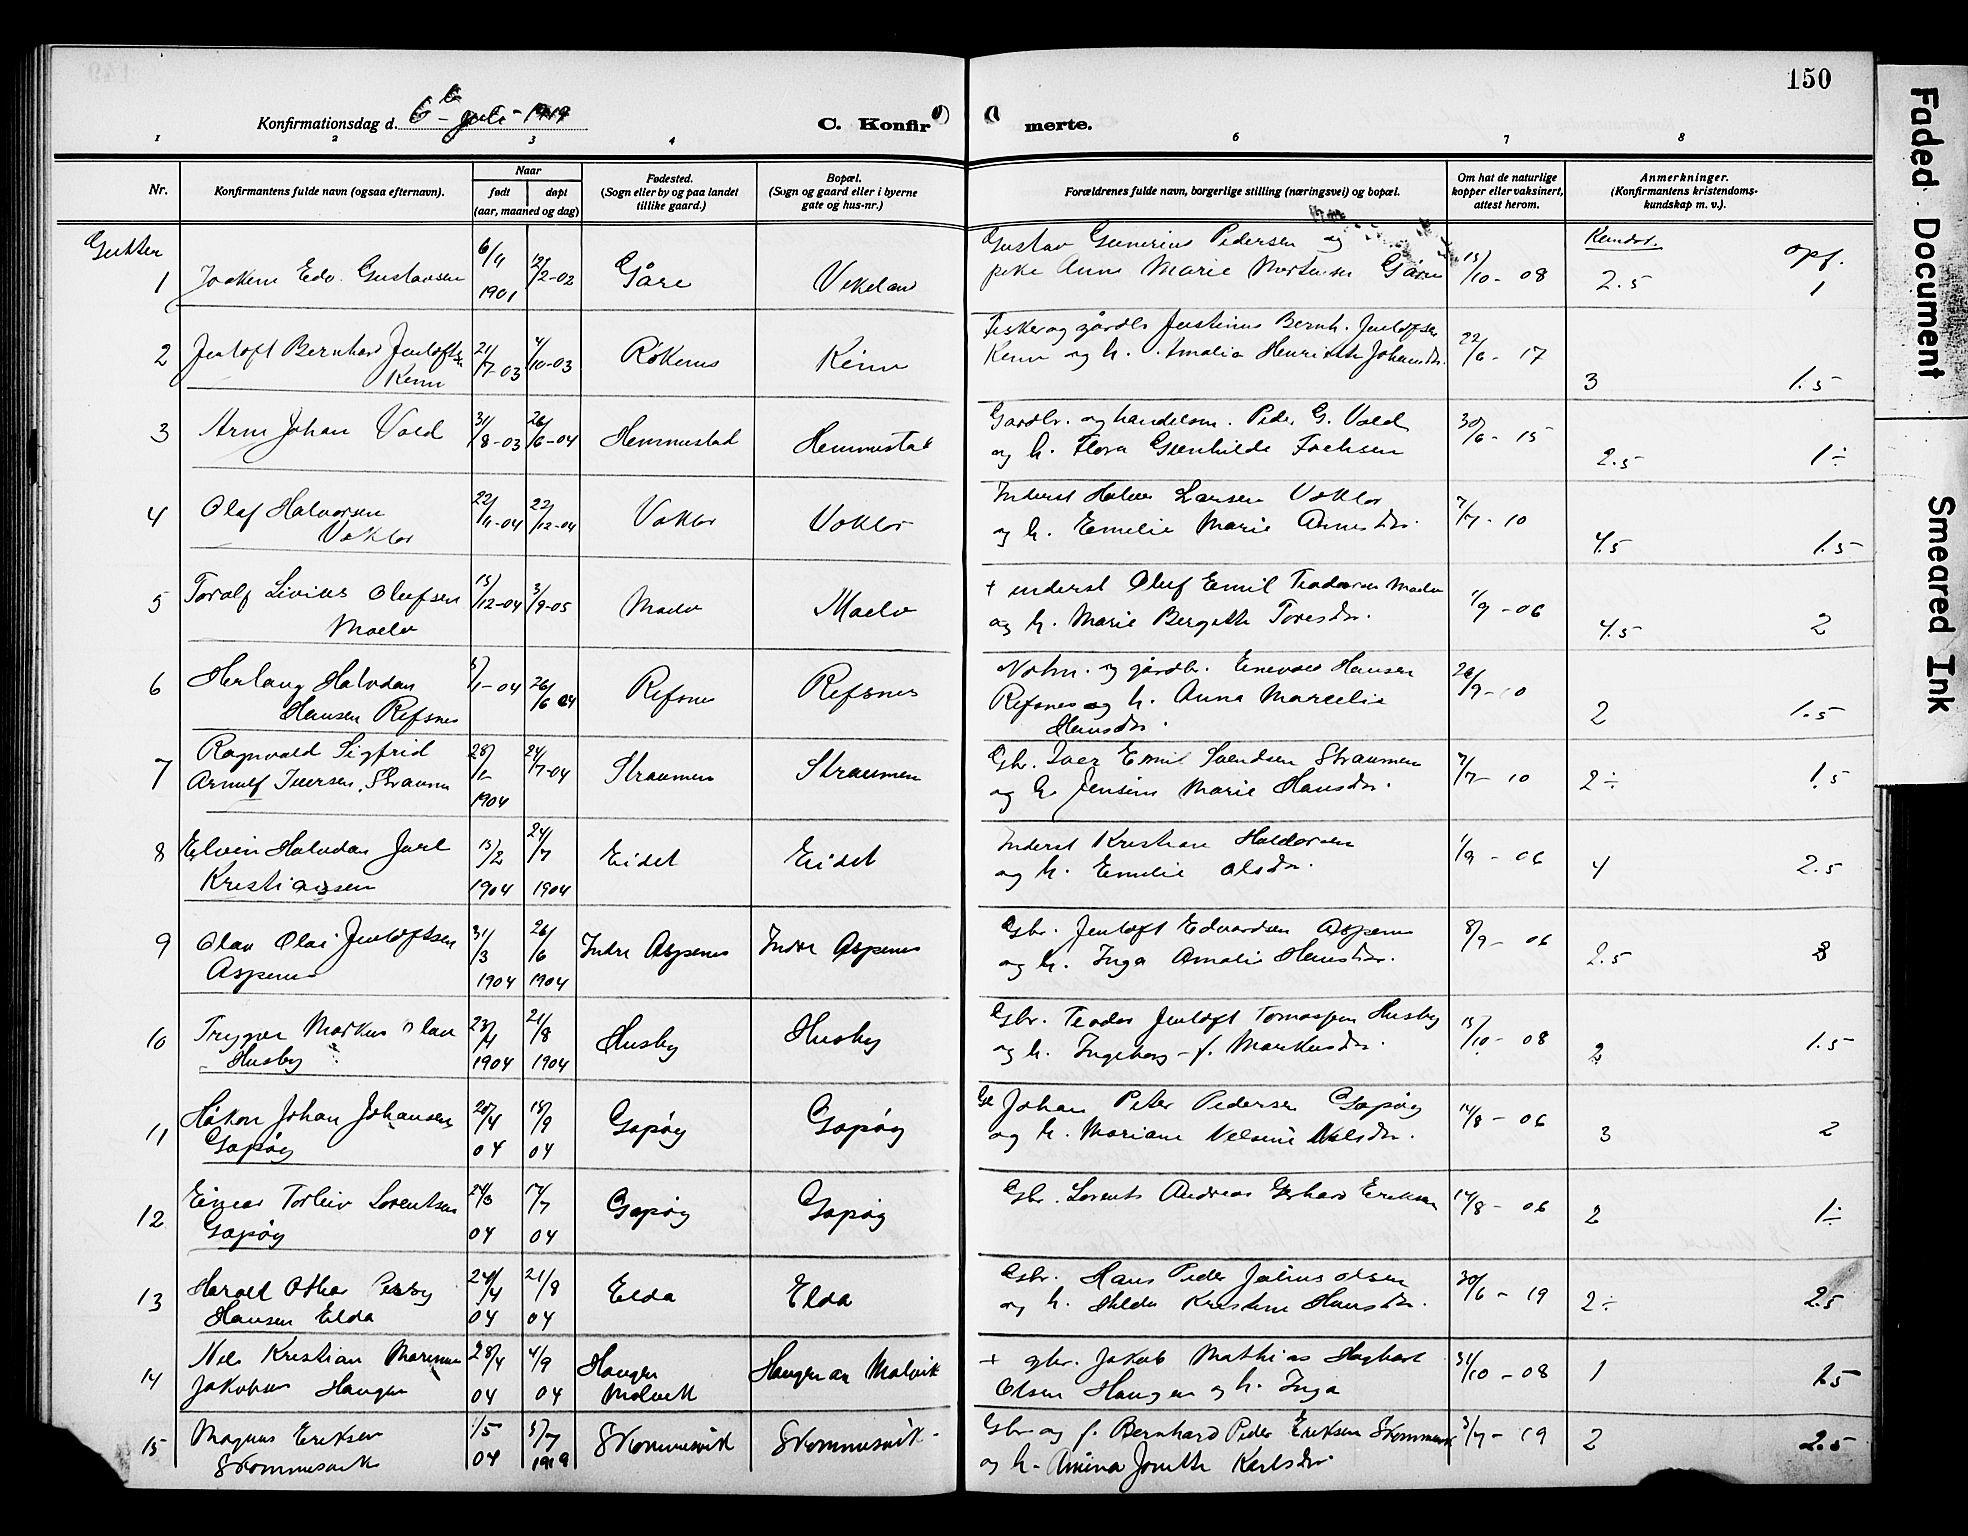 150
Konfirmationsdag d. 6te juli - 1919
C. Konfirmerte.
1 2 3 4 6 7 8
Nr.
Konfirmantens fulde navn (ogsaa efternavn).
Naar
født
døpt
(aar, maaned og dag)
Fødested.
(Sogn eller by og paa landet
tillike gaard.)
Bopæl.
(Sogn og gaard eller i byerne
gate og hus-nr.)
Forældrenes fulde navn, borgerlige stilling (næringsvei) og bopæl.
Om hat de naturlige
kopper eller vaksinert,
attest herom.
Anmerkninger.
(Konfirmantens kristendoms-
kundskap m. v.).
Gutter
Kundsk. opf.
1 Joakim Edv. Gustavsen 6/9 1901 12/2-02 Gåre Vikeland
Gustav Gunerius Pedersen og
pike Anna Marie Mortensen Gåre 13/10 - 08 2.5 1
2 Jentoft Bernhard Jentoftsen
Kinn 21/7-03 4/10-03 Rökenes Kinn
Fisker og gårdbr Justinus Bernh. Jentoftsen
Kinn og h. Amalia Henriette Johansdr. 22/6 - 17 3 1.5
3 Arne Johan Vold 31/8-03 26/6-04 Hemmestad Hemmestad
Gardbr. og handelsm. Peder G. Vold
og h. Flora Gunhilde Fochsen 30/6 - 15 2.5 1÷
4 Olaf Halvorsen
Voktor 22/9-04 22/12-04 Voktor Voktor
Inderst Halvor Larsen Voktor
og h. Emelie Marie Arnesdr. 7/7 - 10 4.5 1.5
5 Toralf Livius Olufsen
Maelv 13/12-04 3/9-05 Maelv Maelv
+ inderst Oluf Emil Teodorsen Maelv
og h. Marie Bergitte Toresdr. 1/9 - 06 4.5 2
6 Herlaug Halvdan
Hansen Refsnes 5/1-04 26/6 04 Refsnes Refsnes
Refsnes og h. Anna Marcelie
Hansdr. 26/9 - 10 2 1.5
7 Ragnvald Sigfrid
Arnulf Iversen, Straumen 28/1 1904 24/7-04 Straumen Straumen
Gbr. Iver Emil Svendsen Straumen
og h. Jensine Marie Hansdr. 7/7 - 10 2÷ 1.5
8 Elvin Halvdan Jarl
Kristiansen 13/2 1904 24/7 1904 Eidet Eidet
Inderst Kristian Haldorsen
og h. Emelie Olsdr. 1/9 - 06 4 2.5
9 Olav Olai Jentoftsen
Aspenes 31/3 1904 26/6 1904 Indre Aspenes Indre Aspenes
Gbr. Jentoft Edvardsen Aspenes
og h. Inga Amalie Hansdr. 8/9 - 06 2.5 3
10 Trygve Markus Olav
Husby 23/4 1904 21/8 1904 Husby Husby
Gbr. Teodor Jentoft Tomassen Husby
og h. Ingeborg f. Markusdr. 13/10 - 08 2 1.5
11 Håkon Johan Johansen
Gapöy 20/4 04 18/9 04 Gapöy Gapöy
Johan Peter Pedersen Gapöy
og h. Mariane Nelsine Nilsdr. 14/8 - 06 3 2
12 Einar Torleiv Lorentsen
Gapöy 24/3 04 17/7 04 Gapöy Gapöy
Gbr. Lorents Andreas Gerhard Eriksen 14/8 - 06 2 1÷
13 Harald Othar Persy
Hansen Elda 24/4 04 21/8 04 Elda Elda
Gbr. Hans Peder Julius Olsen
og h. Hilda Kristine Hansdr. 30/6 - 19 2÷ 2.5
14 Nils Kristian Marenus
Jakobsen Haugen 28/4 04 4/9 04 Haugen
Molvik Haugen av Molvik
+ gbr. Jakob Mathias Hagbart
Olsen Haugen og h. Inga 31/10 - 08 1 1.5
15 Magnus Eriksen
Skommesvik 1/5 04 5/7 1919 Skommesvik Skommesvik
Gbr og f. Bernhard Peder Eriksen Skommesvik 3/7 - 19 2 2.5
og h. Amina Jonette Karlsdr.
Faded Document
Smeared Ink